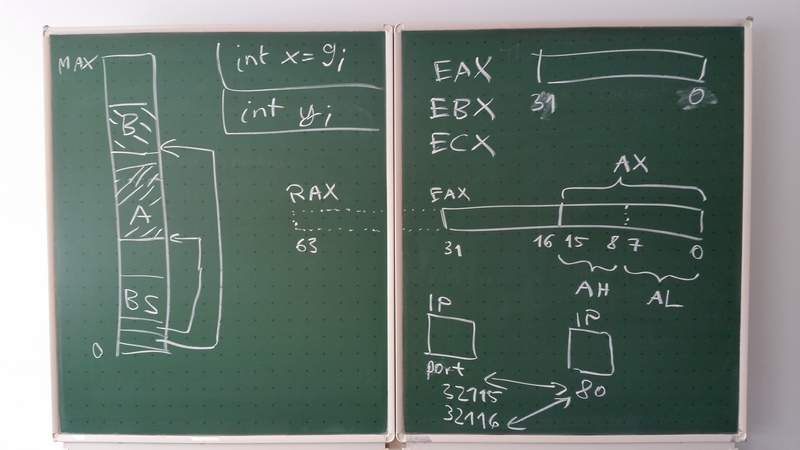 MAX
B
A
BS
0
int x=9;
int y;
EAX
31 0
EBX
ECX
AX
RAX EAX
63 31 16 15 8 7 0
AH AL
IP IP
port
32115 80
32116